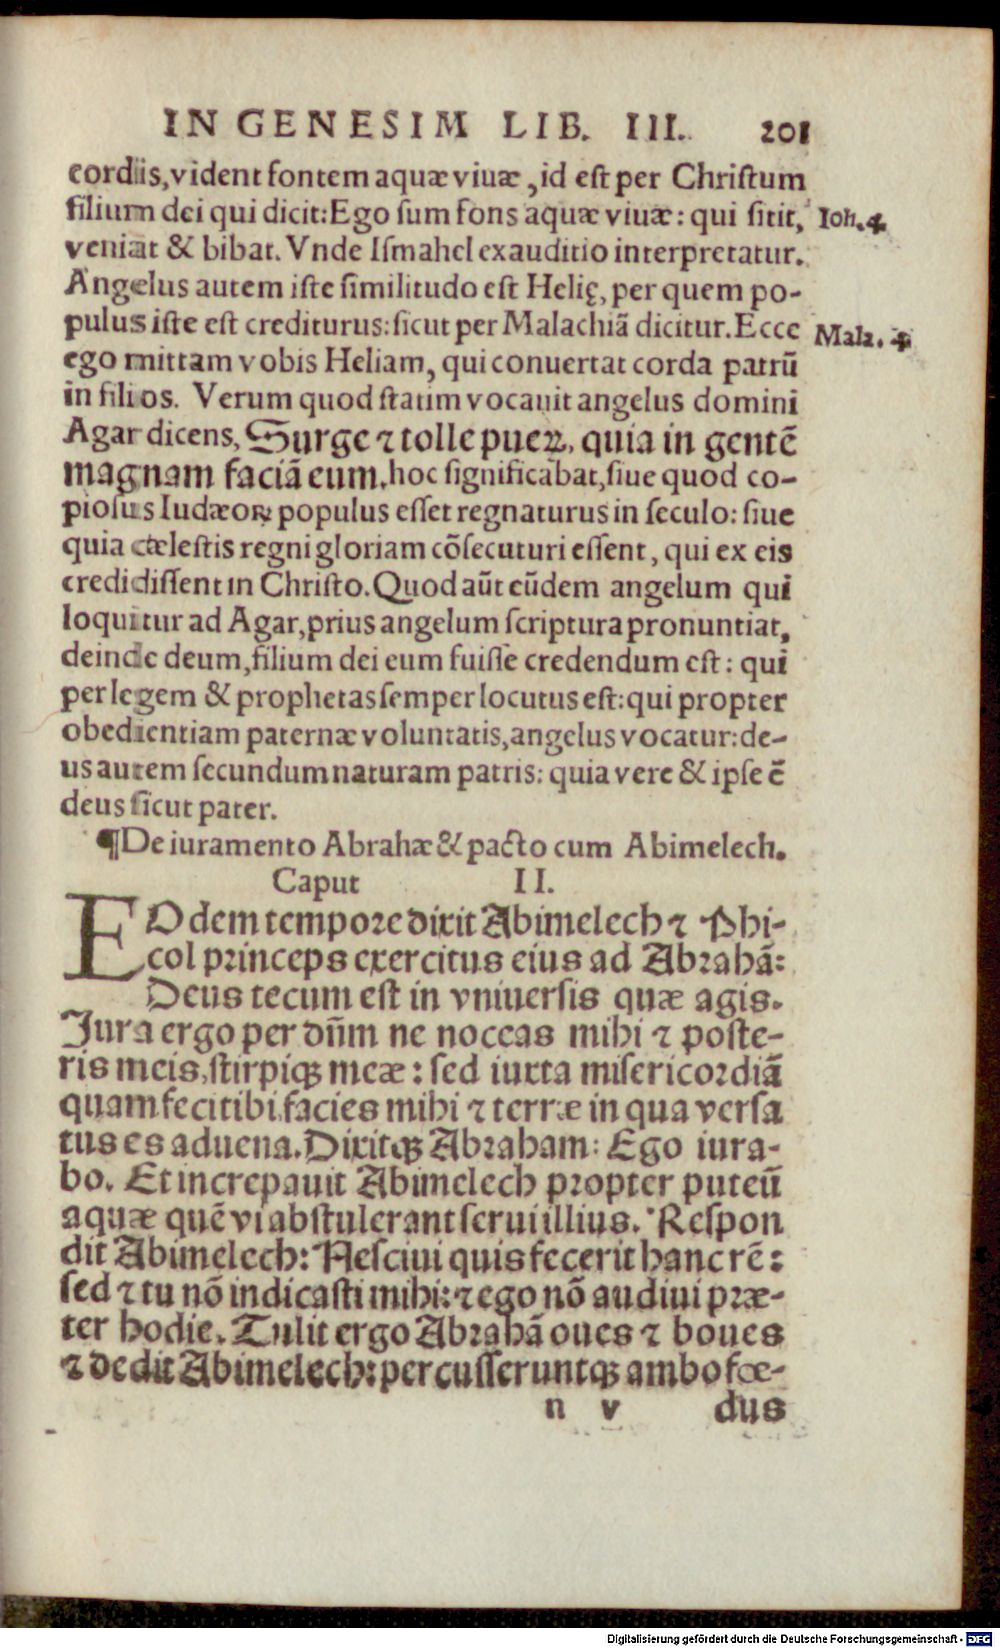 IN GENESIM LIB. III. 201
cordiis, vident fontem aquæ viuæ, id est per Christum
filium dei qui dicit: Ego sum fons aquæ viuæ: qui sitit, Ioh. 4
veniat & bibat. Vnde Ismahel exauditio interpretatur.
Angelus autem iste similitudo est Helię, per quem po-
pulus iste est crediturus: sicut per Malachiā dicitur. Ecce Mala. 4
ego mittam vobis Heliam, qui conuertat corda patrū
in filios. Verum quod statim vocauit angelus domini
Agar dicens, Surge ⁊ tolle pueꝝ, quia in gentē
magnam faciā eum. hoc significabat, siue quod co-
piosus Iudæoꝝ populus esset regnaturus in seculo: siue
quia cælestis regni gloriam cōsecuturi essent, qui ex eis
credidissent in Christo. Quod aūt eūdem angelum qui
loquitur ad Agar, prius angelum scriptura pronuntiat,
deinde deum, filium dei eum fuisse credendum est: qui
per legem & prophetas semper locutus est: qui propter
obedientiam paternæ voluntatis, angelus vocatur: de-
us autem secundum naturam patris: quia vere & ipse ē
deus sicut pater.
¶De iuramento Abrahæ & pacto cum Abimelech.
Caput II.
EOdem tempore dixit Abimelech ⁊ Phi-
col princeps exercitus eius ad Abrahā:
Deus tecum est in vniuersis quæ agis.
Jura ergo per dūm ne noceas mihi ⁊ poste-
ris meis, stirpiqꝫ meæ: sed iuxta misericordiā
quam feci tibi, facies mihi ⁊ terræ in qua versa
tus es aduena. Dixitqꝫ Abraham: Ego iura-
bo. Et increpauit Abimelech propter puteū
aquæ quē vi abstulerant serui illius. Respon
dit Abimelech: Nesciui quis fecerit hanc rē:
sed ⁊ tu nō indicasti mihi: ⁊ ego nō audiui præ-
ter hodie. Tulit ergo Abrahā oues ⁊ boues
⁊ dedit Abimelech: percusseruntqꝫ ambo fœ-
n v dus
Digitalisierung gefördert durch die Deutsche Forschungsgemeinschaft - DFG